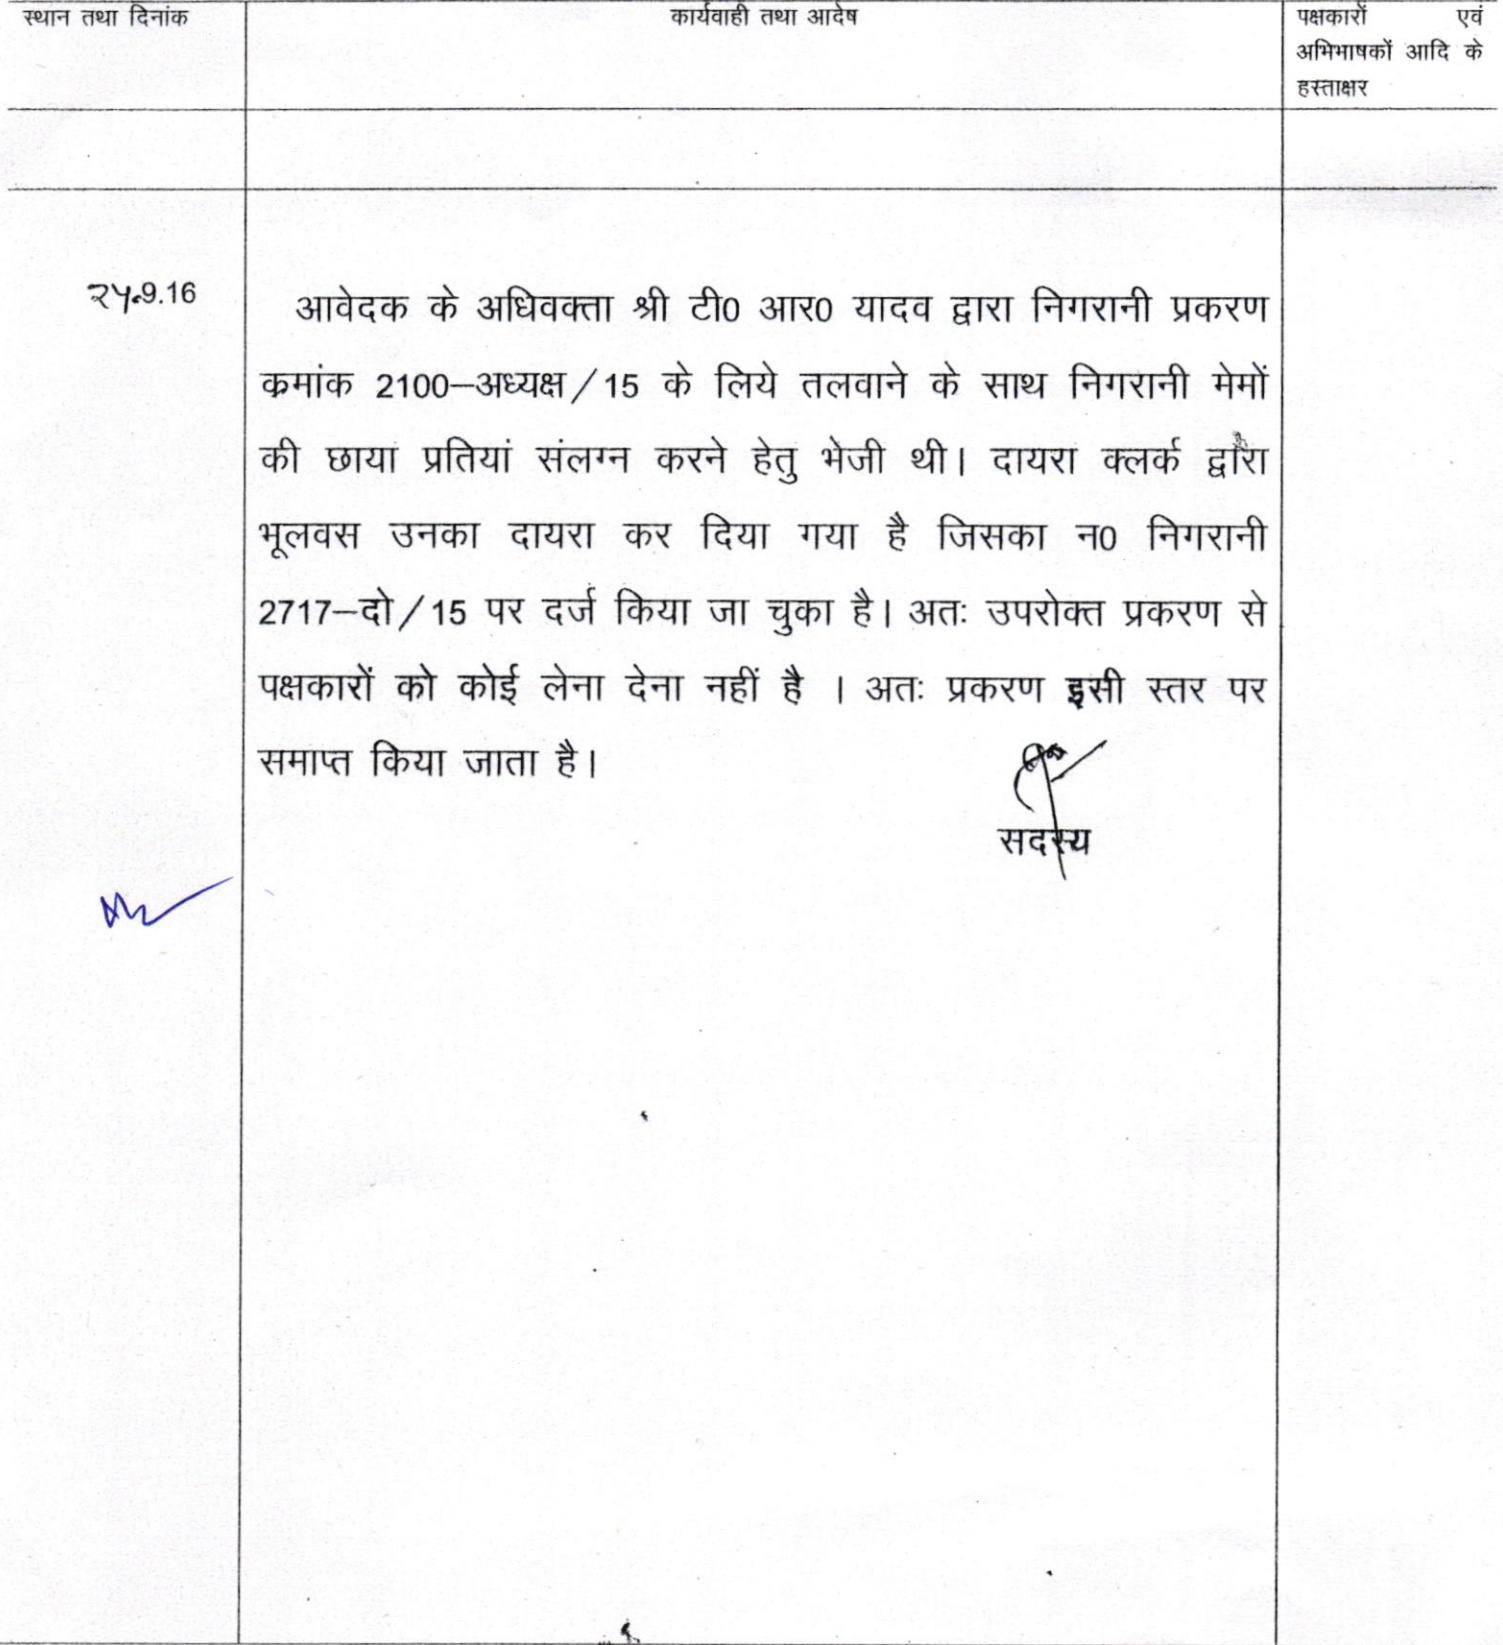 स्थान तथा दिनांक
कार्यवाही तथा आदेष
पक्षकारों एवं
अभिभाषकों आदि के
हस्ताक्षर
.9.16
आवेदक के अधिवक्ता श्री टी0 आर0 यादव द्वारा निगरानी प्रकरण
क्रमांक 2100–अध्यक्ष/15 के लिये तलवाने के साथ निगरानी मेमों
की छाया प्रतियां संलग्न करने हेतु भेजी थी। दायरा क्लर्क द्वारा
भूलवस उनका दायरा कर दिया गया है जिसका न0 निगरानी
2717–दो/15 पर दर्ज किया जा चुका है। अतः उपरोक्त प्रकरण से
पक्षकारों को कोई लेना देना नहीं है । अतः प्रकरण इसी स्तर पर
समाप्त किया जाता है।
सदस्य